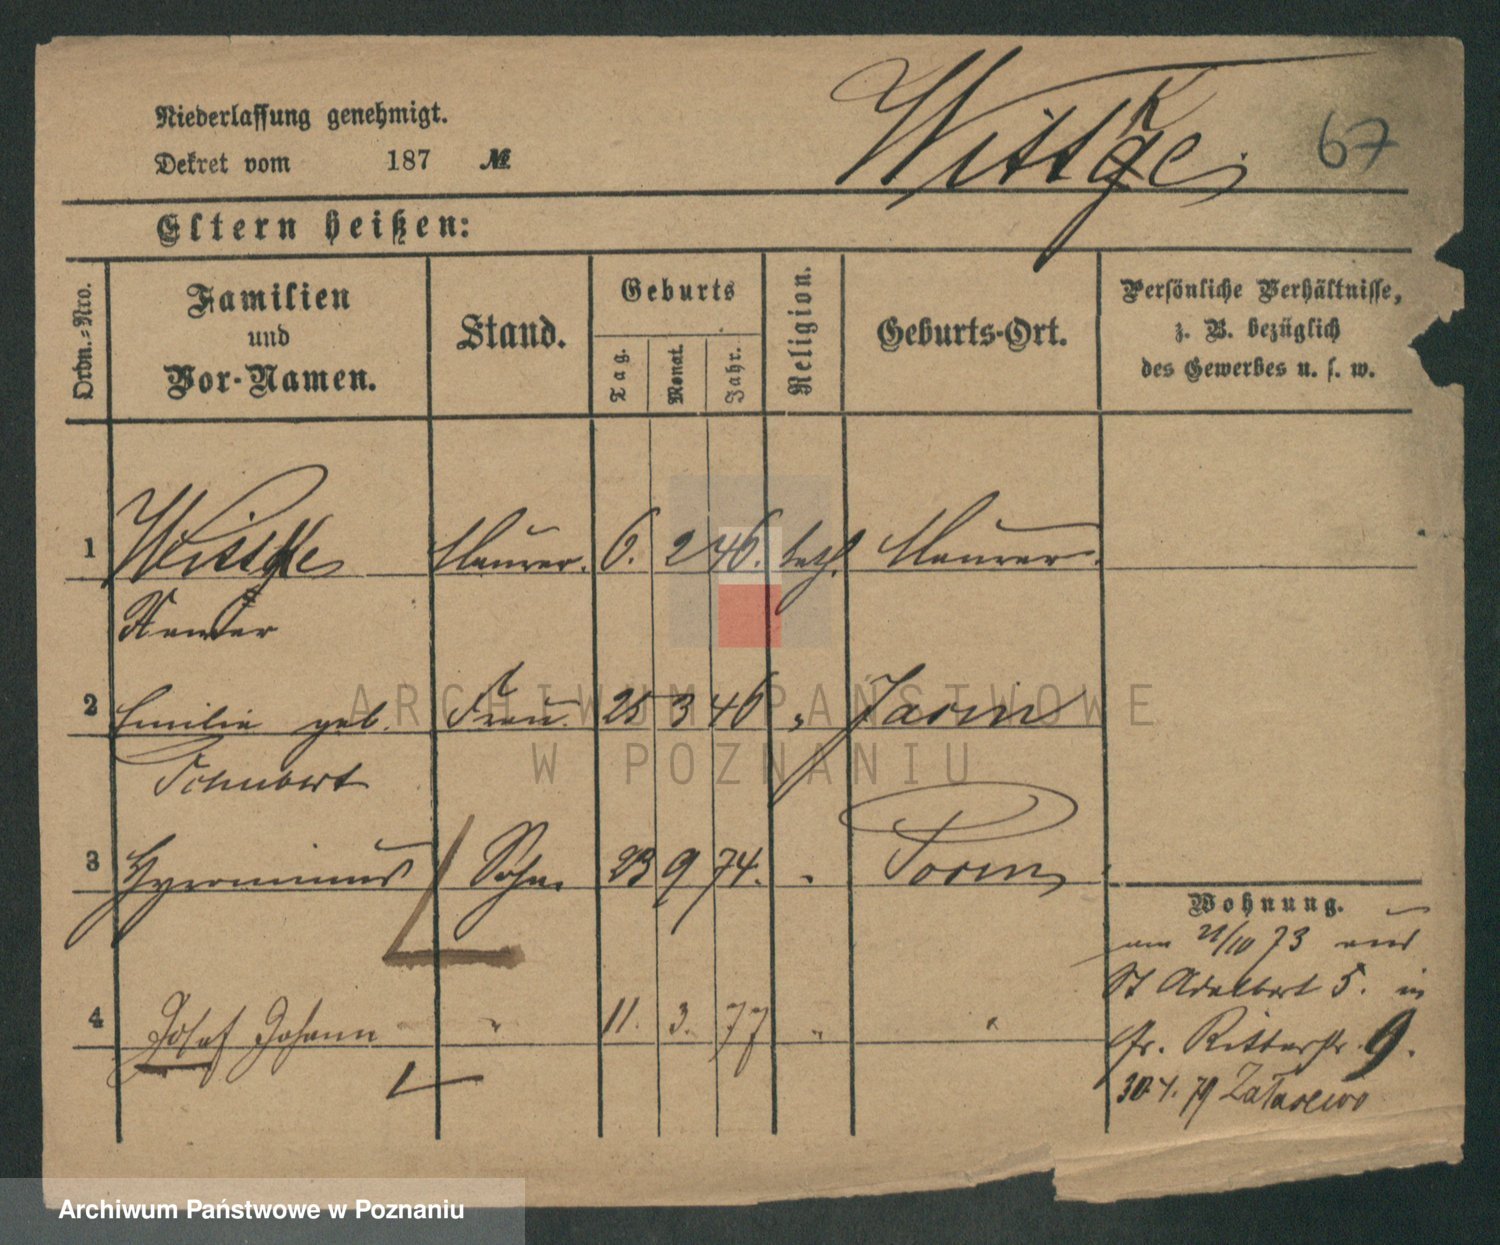 Niederlassung genehmigt.
Wittke
67
Dekret vom 187 №
Eltern heißen:
Ordn.-Nro.
Familien und Vor-Namen.
Stand.
Geburts
Tag. Monat. Jahr.
Religion.
Geburts-Ort.
Persönliche Verhältnisse,
z. B. bezüglich
des Gewerbes u. s. w.
1 Wittke Maurer. 6. 2 46. kath.
2 Emilie geb. Frau 25 3 46 "
Schubert
3 Hyeronimus Sohn 23 9 74. "
Wohnung.
am 21/10 73 aus
St Adalbert 5. in
4 Josef Johann " 11. 3. 77 " "
gr. Ritterstr. 9.
79
ARCHIWUM PAŃSTWOWE
W POZNANIU
Archiwum Państwowe w Poznaniu